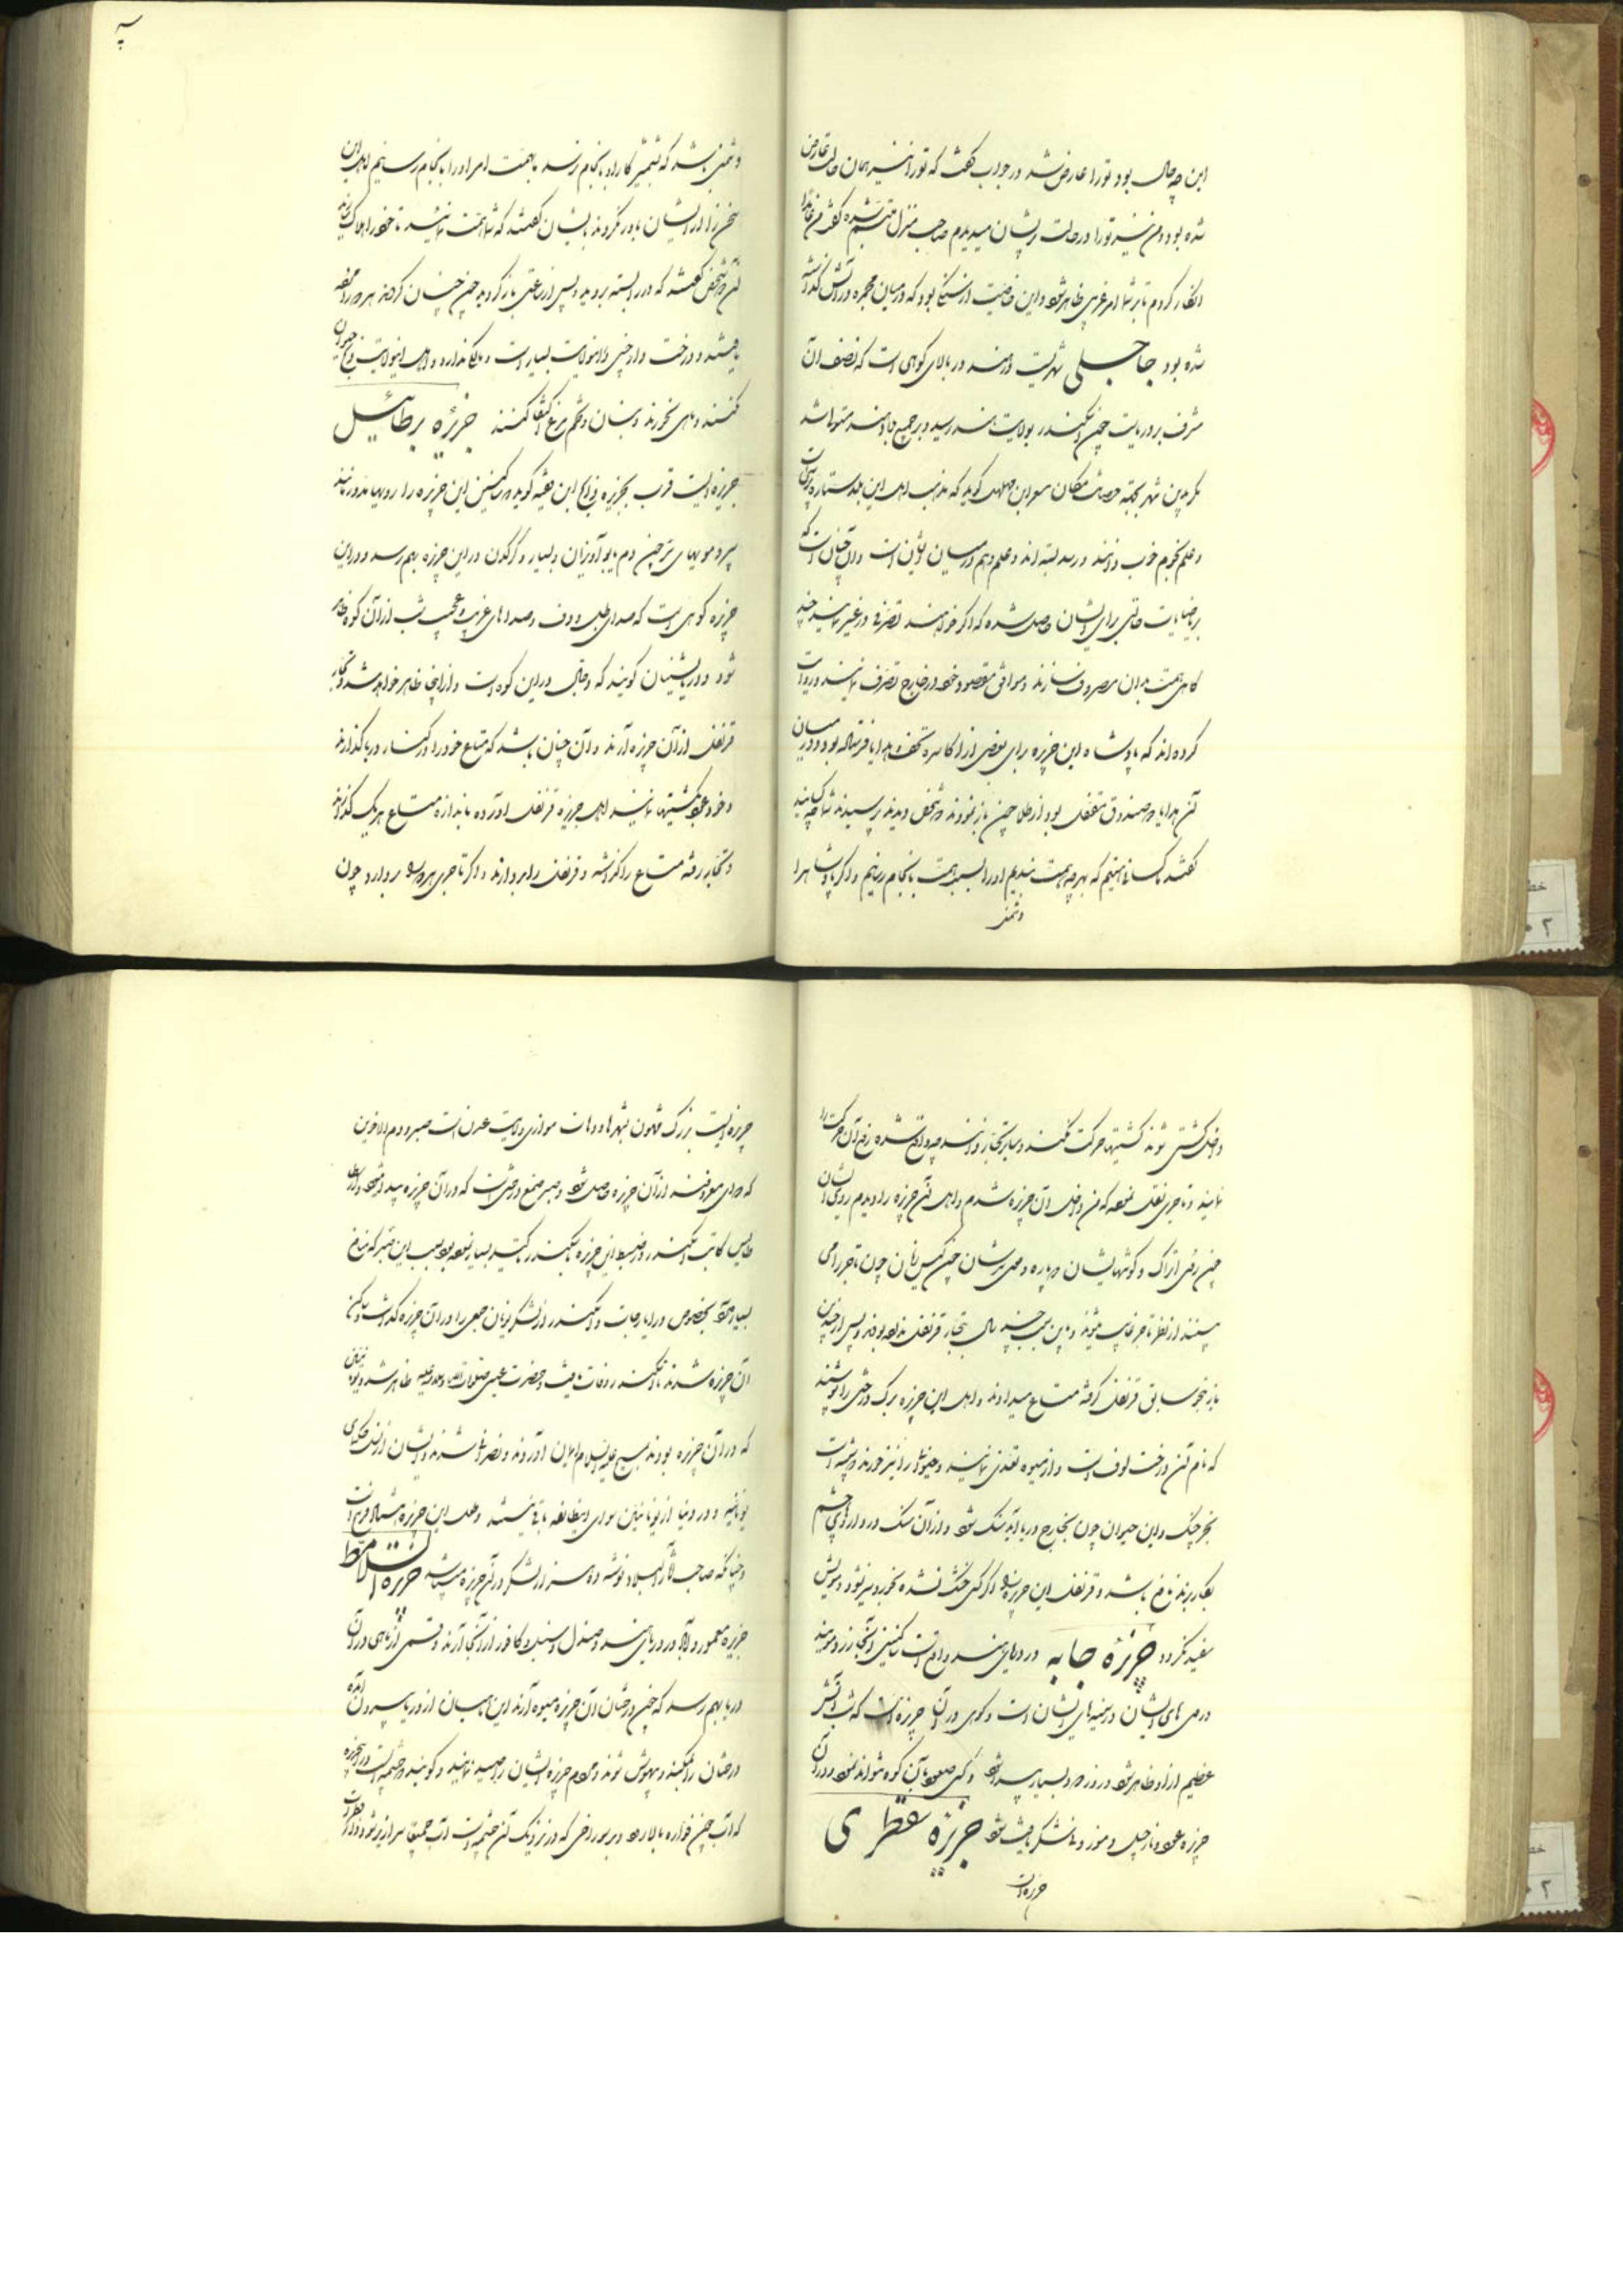 این چه حال بود تو را عارض شد در جواب گفت که تو را نیز همان حالت عارض
شده بود و من نیز تو را در حالت پریشان میدیدم صاحب منزل متبسم شده گفت من
انکار کردم تا بر شما امر غریبی ظاهر شود و این خاصیت از سنگ بود که در میان مجمره در آتش گذاشته
شده بود جاجلی شهریست در هند در بالای کوهی است که نصف آن
مشرف بر دریاست چون اسکندر بولایت هند رسید و بر جمیع بلاد هند مستولی شد
مگر بدین شهر بجهة حصانت مکان مسعر بن مهلهل گوید که مذهب اهل این بلد ستاره پرستی است
و علم نجوم خوب دانند و رصد بسته اند و علم وهم در میان ایشان است و آن چنان است که
بریاضیات حالتی برای ایشان حاصل شده که اگر خواهند تصرفی در غیر نمایند چند
گاهی همت بدان مصروف سازند و موافق مقصود خود در خارج تصرف نمایند و روایت
کرده اند که پادشاه این جزیره برای بعضی از اکاسره تحف و هدایا فرستاده بود و در میان
آن هدایا دو صندوق مقفل بود از طلا چون باز نمودند دو شخص دیدند پرسیدند شما چه کسانید
گفتند ما کسانی هستیم که بهر چه همت بندیم او را بسبب همت بانجام رسانیم و اگر پادشاه را
دشمنی
دشمنی باشد که بشمشیر کار او بانجام نرسد ما بهمت امر او را بانجام رسانیم اهل این
سخن را از ایشان باور نکردند بایشان گفتند که شما همت نمائید تا خود را هلاک
آن دو شخص گفتند که در را بسته بروید و پس از ساعتی باز گردید چون چنان کردند هر دو را مرده
یافتند و درخت دارچینی در این ولایت بسیار است و مالک ندارد و اهل این ولایت ذبح حیوان
نکنند و ماهی نخورند و بنان و تخم مرغ اکتفا کنند جزیره برطائیل
جزیره ایست قریب بجزیره زابج ابن فقیه گوید ساکنین این جزیره را رویها مدور مانند
سپر و مویهای ترچون دم یابو آویزان و بسیار و کرگدن در این جزیره بهم رسد و در این
جزیره کوهی است که صدای طبل و دف و صداهای غریب و عجیب شب از آن کوه ظاهر
شود و دریانشینان گویند که دجال در این کوه است و از اینجا ظاهر خواهد شد و تجار
قرنفل از آن جزیره آرند و آن چنان باشد که متاع خود را در کنار دریا گذارند
و خود عود بکشتیها نمایند اهل جزیره قرنفل آورده باندازه متاع هر یک گذارند
و تجار رفته متاع را گذاشته و قرنفل را بردارند و اگر تاجری هر دو را بردارد چون
داخل کشتی شوند کشتیها حرکت نکنند و سایر تجار دانند چه واقع شده رفع آن حرکت را
نمایند و تاجری نقل نموده که من داخل آن جزیره شدم و اهل آن جزیره را دیدم روی ایشان
چون روی اتراک و گوشهایشان پاره و موی سرشان چون گیس زنان چون تاجر را می
بینند از نظر تاجر غایب میشوند و باین سبب چندین سال تجار قرنفل ندیده بودند و پس از چندی
باز بنحو سابق قرنفل گرفته متاع میدادند و اهل این جزیره برگ درختی را پوشند
که نام آن درخت لوف است و از میوه تغذی نمایند و حیوانات را نیز خورند و شبیه است
بخرچنگ و این حیوان چون بخارج دریا آید سنگ شود و از آن سنگ در داروهای چشم
بکار برند نافع باشد و قرنفل این جزیره را اگر کسی خشک نشده بخورد پیر نشود و مویش
سفید نگردد جزیره جابه در دریای هند واقع است ساکنین آنجا زرد رویند
در صورتهای ایشان در سینه های ایشان است و کوهی در آن جزیره است که شب آتش
عظیم از او ظاهر شود و روز دود بسیار پیدا شود و کسی صعود بآن کوه نتواند نمود و در آن
جزیره عود و نارجیل و موز و نیشکر یافت شود جزیره سقطری
جزیره ایست
جزیره ایست بزرگ مشحون بشهرها و دهات موازی ولایت عدن است صبر و دم الاخوین
که دوای معروفند از آن جزیره حاصل شود و صبر صمغ درختی است که در آن جزیره پیدا میشود و ارسطا
طالیس کتابت اسکندر را در ضبط این جزیره باسکندر تاکید بسیار نموده بود بسبب این صبر که نافع
بسیار دارد بخصوص در ایارجات و اسکندر از لشکر یونان جمعی را در آن جزیره گذاشت و ساکن
آن جزیره شدند تا اسکندر وفات یافت و حضرت عیسی صلوات الله و سلامه علیه ظاهر شد و یونانیانی
که در آن جزیره بودند بمسیح علیه السلام ایمان آوردند و نصرانی شدند و ایشان از نسل حکمای
یونانند و در دنیا از یونانیین سوای این طایفه باقی نیستند و طول این جزیره هشتاد فرسخ است
و چنانکه صاحب آثار البلاد نوشته ده هزار لشکر در آن جزیره میباشند جزیره السلامط
جزیره معمور و آباد در دریای هند و صندل و سنبل و کافور از آنجا آرند و قسمی از ماهی در آن
دریا بهم رسد که چون درختان آن جزیره میوه آرند این ماهیان از دریا بیرون آمده
درختان را بمکند و بیهوش شوند و مردم جزیره ایشان را صید نمایند و گویند چشمه ایست در آن جزیره
که آب چون فواره بالا رود و در سوراخی که در نزدیک آن چشمه است آب جمیعا سرازیر شود و از